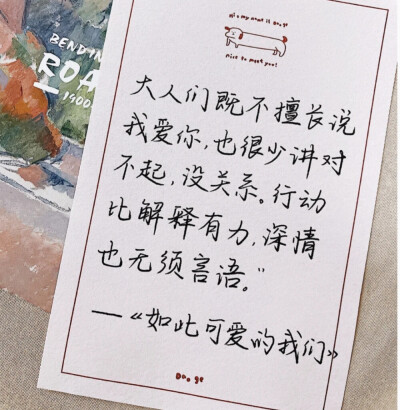 hi~ my name is Do. ge
nice to meet you!
大人们既不擅长说
我爱你,也很少讲对
不起,没关系。行动
比解释有力,深情
也无须言语。”
——《如此可爱的我们》
Do. ge
BEND IN
ROA
1900